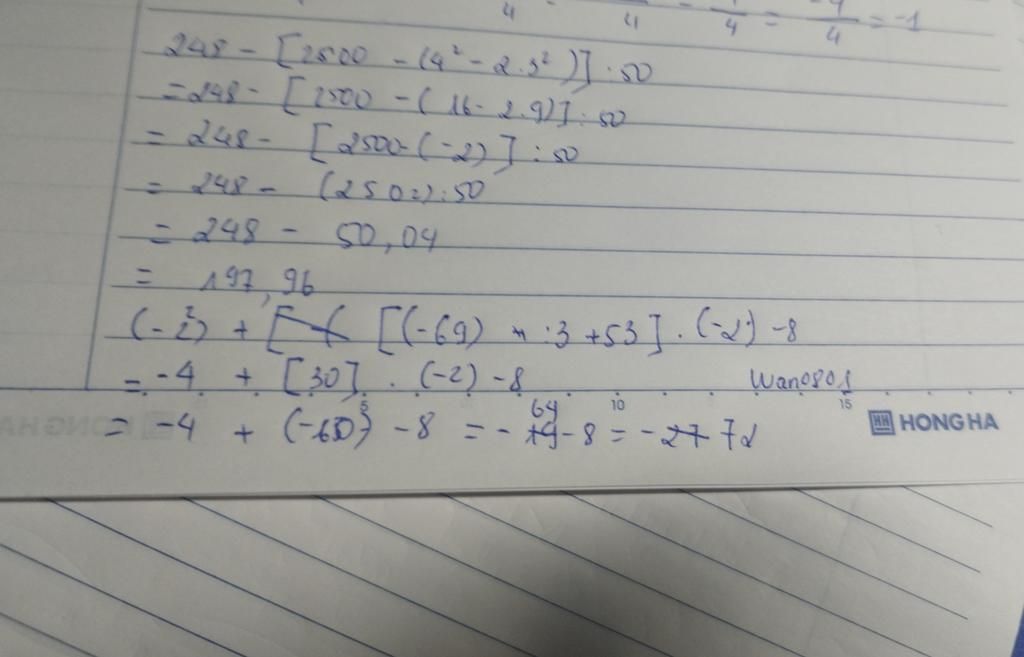 4 4 - 1/4 = -4/4 = -1
248 - [2500 - (4² - 2.3²)] : 50
= 248 - [2500 - (16 - 2.9)] : 50
= 248 - [2500 - (-2)] : 50
= 248 - (2502) : 50
= 248 - 50,04
= 197,96
(-2²) + [(-69) : 3 + 53] . (-2) - 8
= -4 + [30] . (-2) - 8
Wan0801
= -4 + (-60) - 8 = - 64 - 8 = - 72
10 15
HONG HA